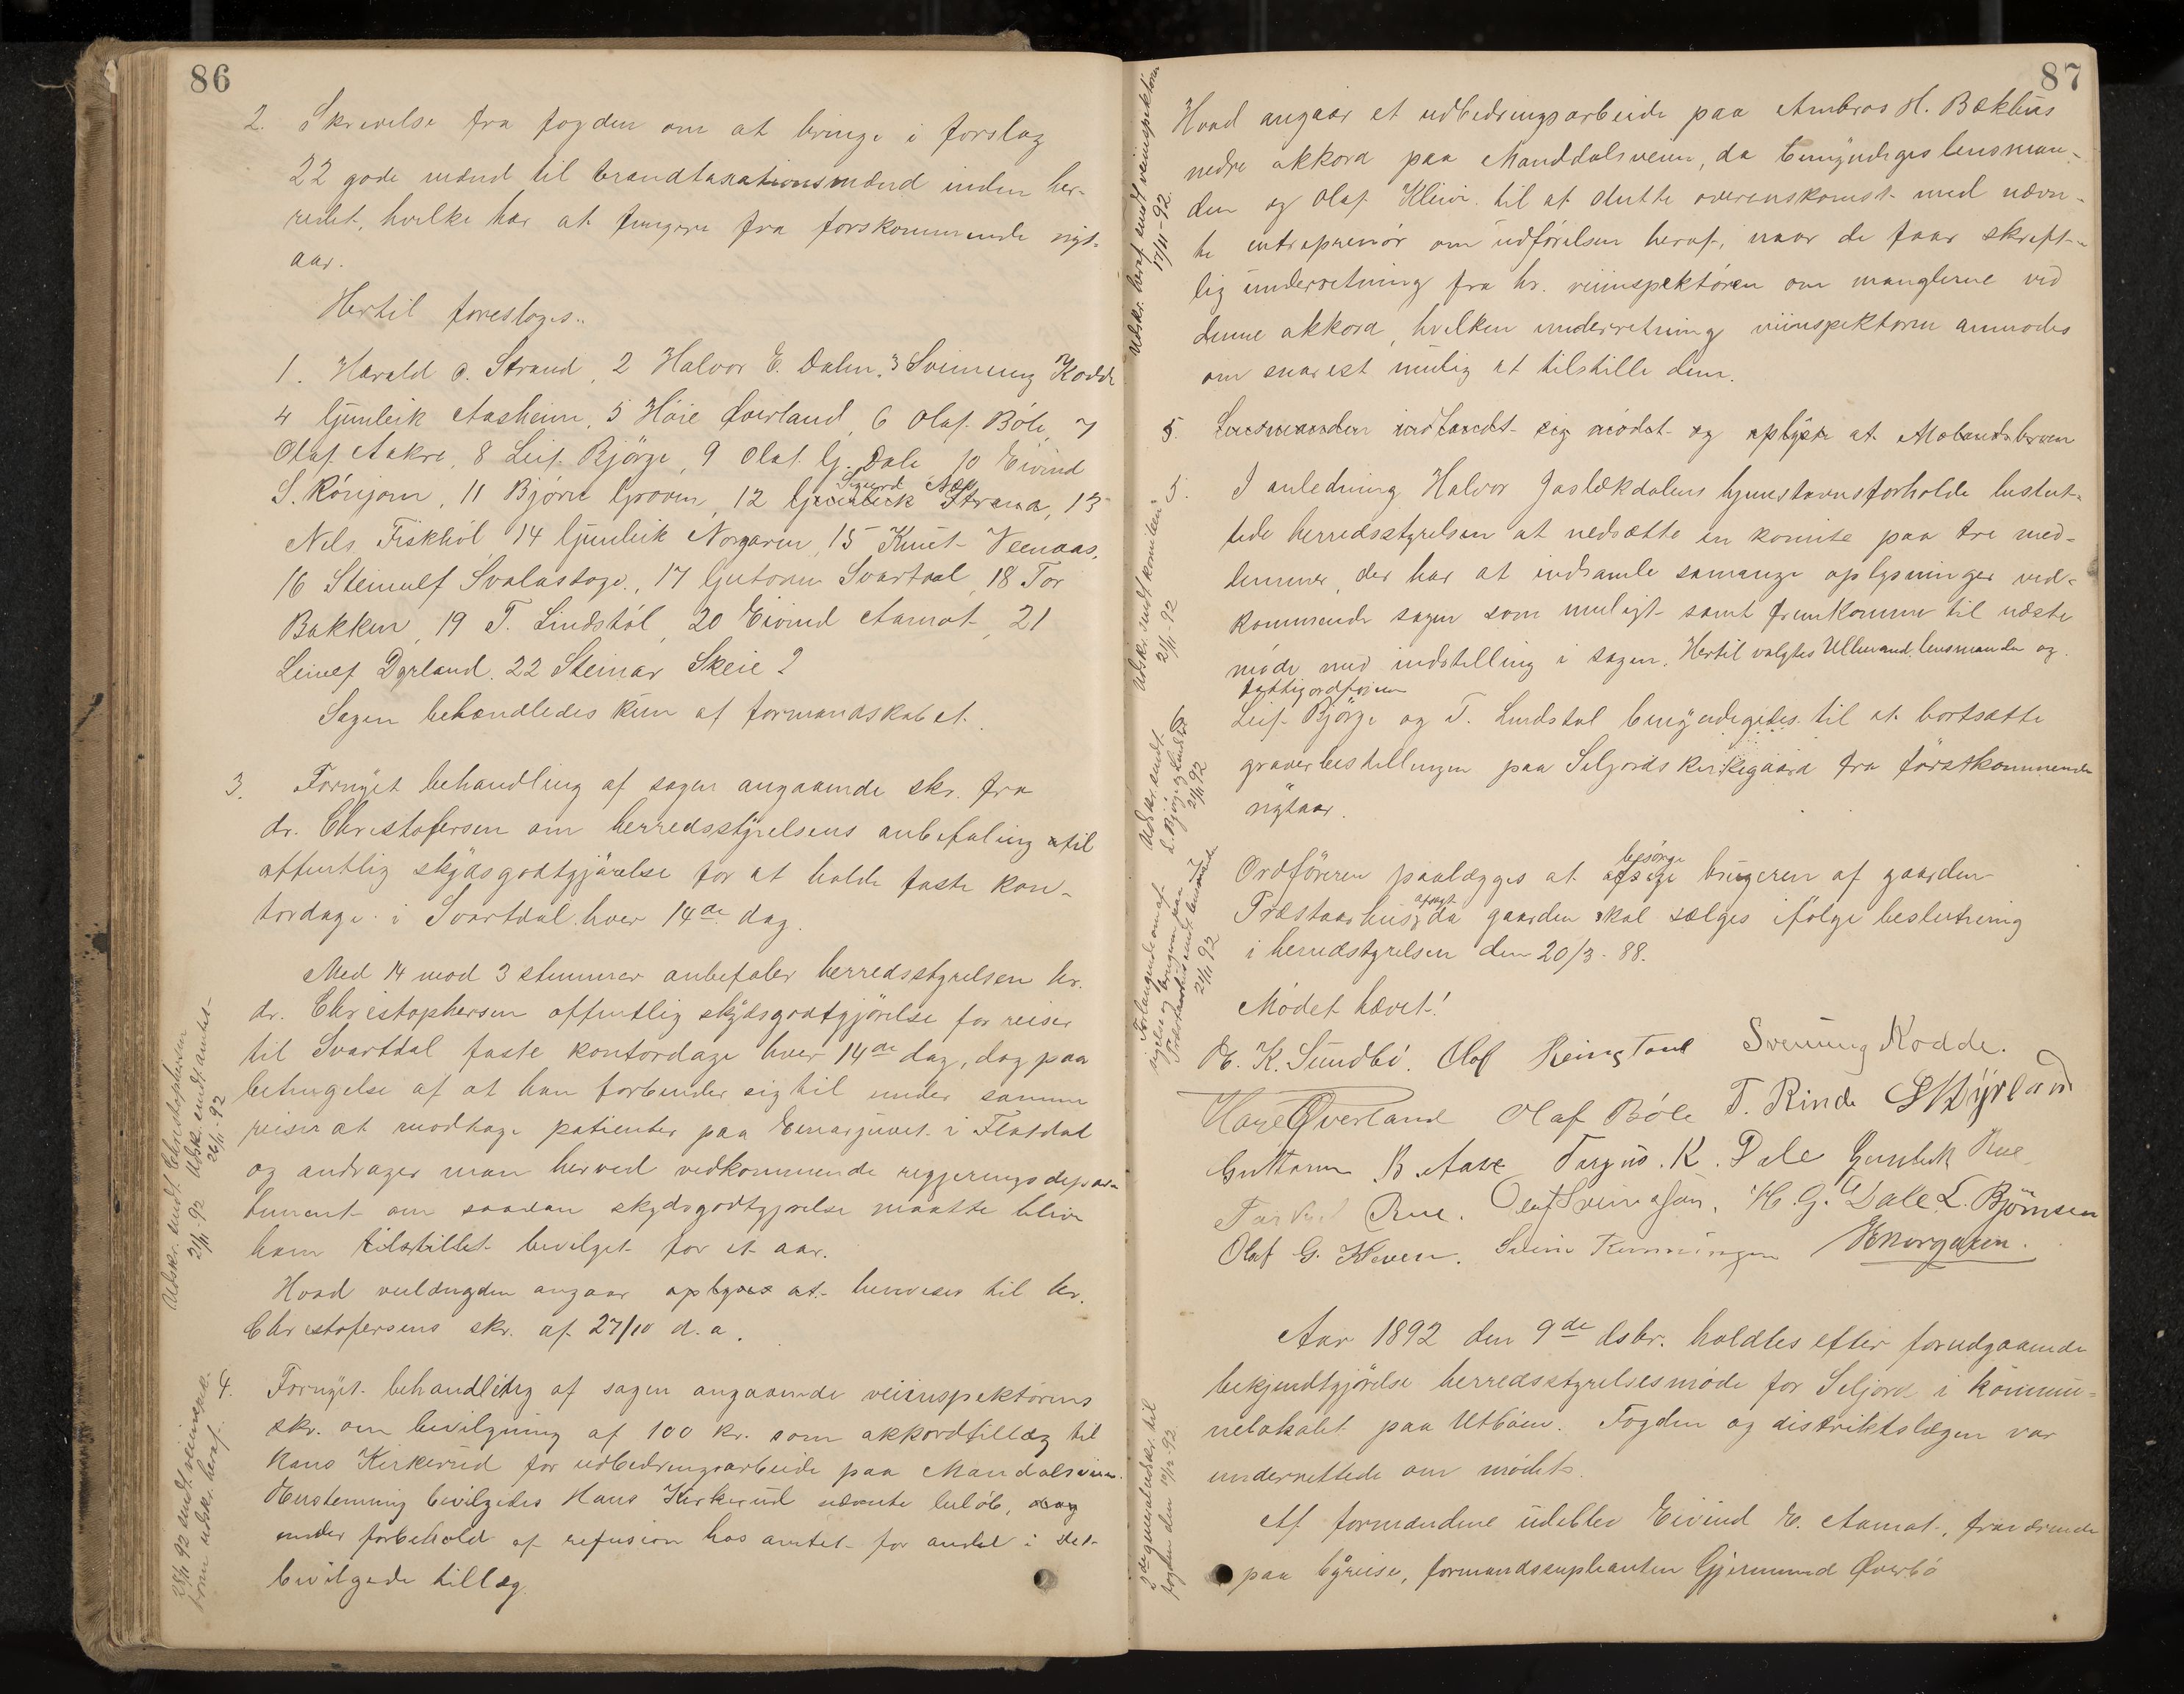 86
2. Skrivelse fra fogden om at bringe i forslag
22 gode mænd til brandtaxationsmænd inden her-
redet, hvilke har at fungere fra førskommende nyt-
aar.
Hertil foresloges:
1. Harald O. Strand, 2 Halvor E. Dalen, 3 Sveinung Kodde
4 Gjunleik Aasheim, 5 Høie Øverland, 6 Olaf Bøle, 7
Olaf Aakre, 8 Leif Bjørge, 9 Olaf G. Dale, 10 Eivind
Sigurd Næs
S. Rønjom, 11 Bjørn Groven, 12 Gjunleik Strand, 13
Nels Fiskhøl, 14 Gjunleik Norgaren, 15 Knut Veenaas,
16 Steinulf Svalastoge, 17 Gutorm Svartdal, 18 Tor
Bakken, 19 T. Lindstøl, 20 Eivind Aamot, 21
Leiulf Dyrland, 22 Steinar Skeie ?
Sagen behandledes kun af formandskabet.
3. Fornyet behandling af sagen angaaende skr. fra
dr. Christofersen om herredsstyrelsens anbefaling til
offentlig skydsgodtgjørelse for at holde faste kon-
tordage i Svartdal hver 14de dag.
Med 14 mod 3 stemmer anbefaler herredsstyrelsen hr.
dr. Christophersen offentlig skydsgodtgjørelse for reiser
til Svartdal faste kontordage hver 14de dag, dog paa
betingelse af at han forbinder sig til under samme
reiser at modtage patienter paa Einarjuvet i Flatdal
og andrager man herved vedkommende regjeringsdepar-
tement om saadan skydsgodtgjørelse maatte blive
ham tilstillet bevilget for et aar.
Hvad veilængden angaar oplyses at henvises til hr.
Christofersens skr. af 27/10 d.a.
4. Fornyet behandling af sagen angaaende veiinspektørens
skr. om bevilgning af 100 kr. som akkordtillæg til
Hans Kirkerud for udbedringsarbeide paa Mandalsveien.
Enstemmig bevilgedes Hans Kirkerud nævnte beløb, dog
under forbehold af refusion hos amtet for andel i det
bevilgede tillæg.
Udskr. sendt Christophersen
21/11-92 Udsk. sendt amtet
26/11-92
28/11 92 sendt veiinspek.
tøren udskr. heraf.
87
Hvad angaar et udbedringsarbeide paa Ambros H. Bækhus
nedre akkord paa Manddalsveien, da bemyndiges lensman-
den og Olaf Kleive til at slutte overenskomst med nævn-
te entreprenør om udførelsen heraf, naar de faar skrift-
lig underretning fra hr. veiinspektøren om manglerne ved
denne akkord, hvilken underretning veiinspektøren anmodes
om snarest mulig at tilstille dem.
5. Lensmanden indfandt sig mødet og oplyste at Molandsbroen
5. I anledning Halvor Jaslækdalens hjemstavnsforholde beslut-
tede herredsstyrelsen at nedsætte en komite paa tre med-
lemmer, der har at indsamle samange oplysninger ved-
kommende sagen som muligt samt fremkomme til næste
møde med indstilling i sagen. Hertil valgtes Ullmand, lensmanden og
fattigordføreren
6. Leif Bjørge og T. Lindstøl bemyndigedes til at bortsætte
graverbestillingen paa Seljords kirkegaard fra førstkommende
nytaar.
besørge
7. Ordføreren paalægges at afsige brugeren af gaarden
afsagt
Præstaarhus, da gaarden skal sælges ifølge beslutning
i herredstyrelsen den 20/3-88.
Mødet hævet!
E. K. Sundbø. Olaf Heingstøul Sveinung Kodde.
Høye Øverland Olaf Bøle T. Rinde L H Dyrland
Guttorm B. Aase Targus K. Dale Gunleik Rue
Tarkjel Rue. Olaf Sveinasson. H. G. Dale. L. Björnsen
Olaf G. Kleven. Svein HNorgaren.
Aar 1892 den 9de dsbr. holdtes efter forudgaaende
bekjendtgjørelse herredsstyrelsesmøde for Seljord i kommu-
nelokalet paa Utbøen. Fogden og distriktslægen var
underrettede om mødet.
Af formændene udeblev Eivind E. Aamot, fraværende
paa byreise, formandssuplianten Gjermund Øverbø
Udskr. heraf sendt veiinspektøren
17/11-92.
Udskr. sendt komiteen
21/11 92
Udskr. sendt
L. Bjørge og Lindstøl
21/11 92
Forlangende om af-
sigelse af brugeren paa
Præstaarhus sendt lensmanden
21/11 92
2de generaludskr. til
fogden den 10/12-92.